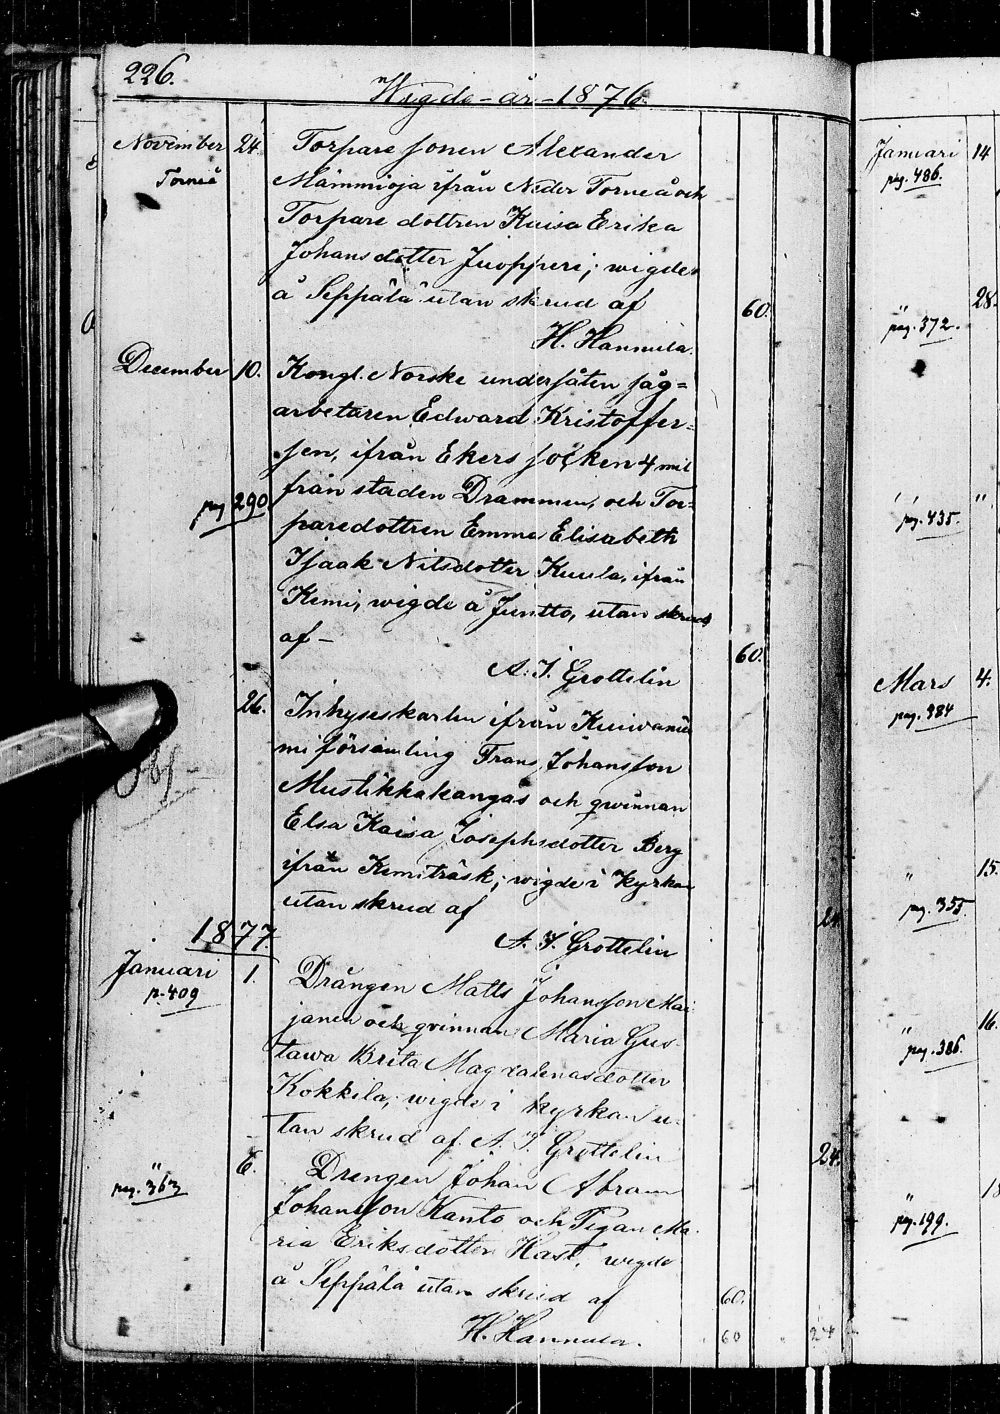 226.
Wigde-år-1876.
November 24. Torpare sonen Alexander
Torneå
Mämmioja ifrån Neder Torneå och
Torpare dottren Kaisa Erika
Johansdotter Juopperi; wigde
å Seppälä utan skrud af
60.
H. Hannula.
December 10. Kongl. Norske undersåten såg=
arbetaren Edward Kristoffer=
sen, ifrån Ekers socken 4 mil
från staden Drammen, och Tor-
pag 290
paredottren Emma Elisabeth
Isaak Nilsdotter Kuula, ifrån
Kemi, wigde å Juntto, utan skrud
af –
60.
A. I. Grottelin
26. Inhyseskarlen ifrån Kuivanie
mi församling Frans Johansson
Mustikkakangas och qwinnan
Elsa Kaisa Josephsdotter Berg
ifrån Kemiträsk; wigde i kyrkan
utan skrud af
24
A. I. Grottelin
1877.
Januari 1. Drängen Matts Johansson Mai
p. 409
janen och qvinnan Maria Gus-
tawa Brita Magdalenasdotter
Kokkila, wigde i kyrkan u-
tan skrud af A. I. Grottelin
24.
" 6. Drengen Johan Abram
pag. 363
Johansson Kanto och Pigan Ma-
ria Eriksdotter Hast, wigde
å Seppälä utan skrud af
60.
H. Hannula.
60 " 24
Januari 14
pag. 486.
28.
" pag. 372.
" "
pag. 435.
Mars 4.
pag. 384
15.
"
pag. 355.
16.
"
pag. 386.
"
pag. 199.